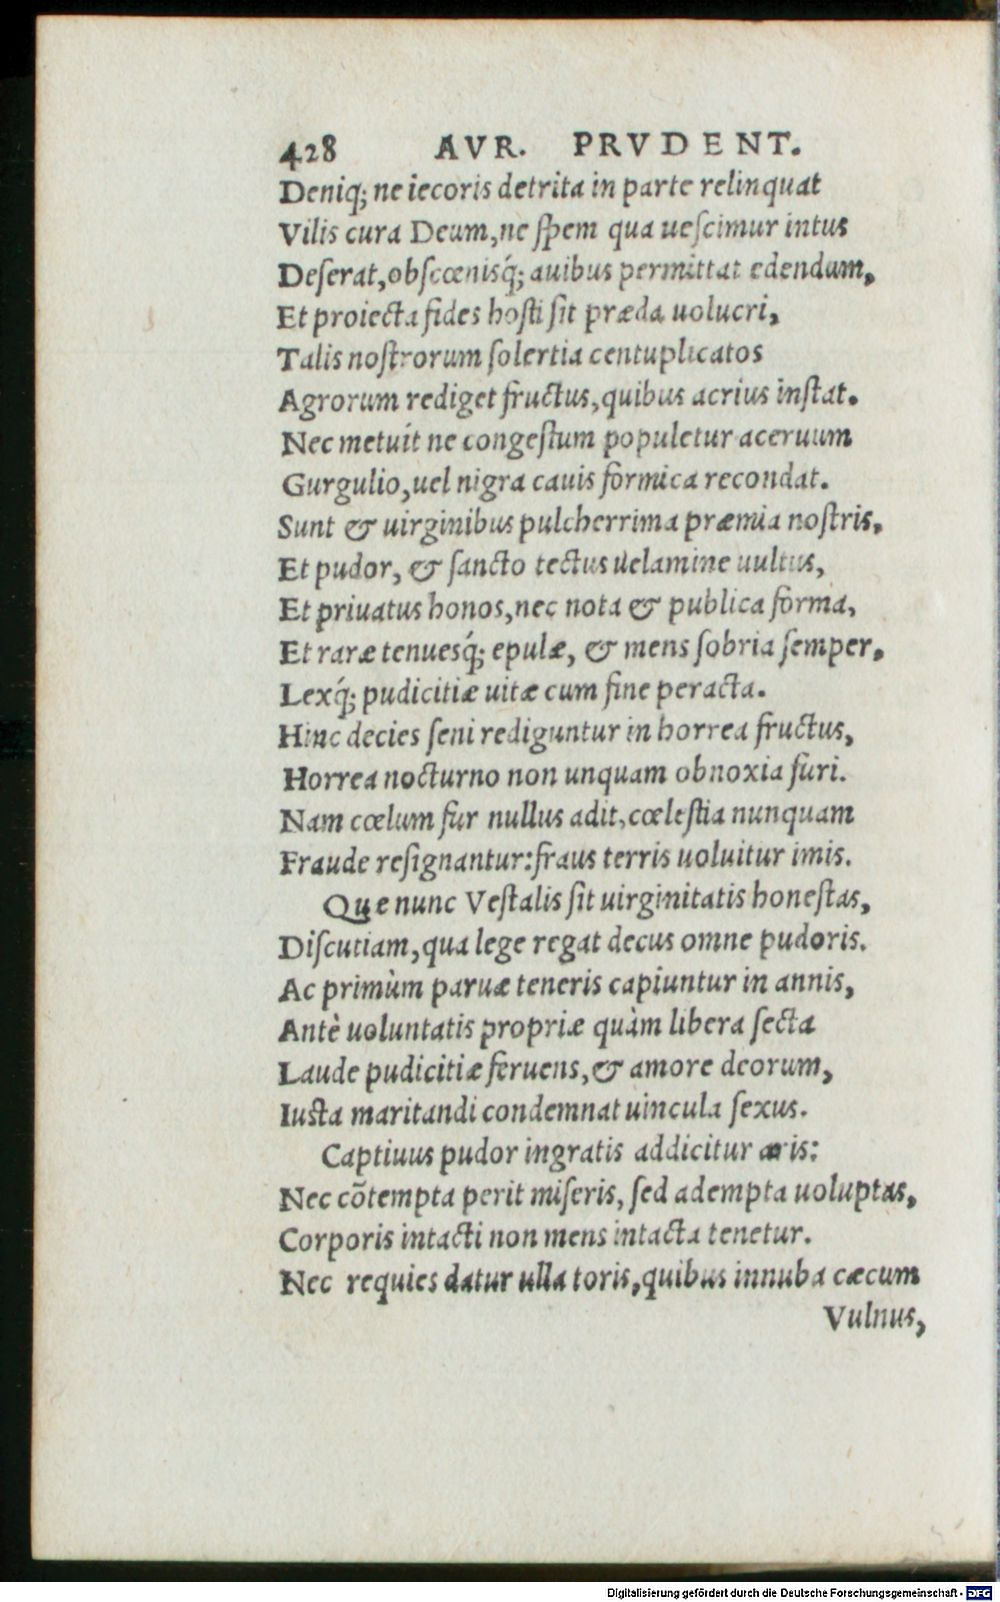 428 AVR. PRVDENT.
Deniq; ne iecoris detrita in parte relinquat
Vilis cura Deum, ne ſpem qua ueſcimur intus
Deſerat, obſcœnisq́; auibus permittat edendam,
Et proiecta fides hoſti ſit præda uolucri,
Talis noſtrorum ſolertia centuplicatos
Agrorum rediget fructus, quibus acrius inſtat.
Nec metuit ne congeſtum populetur aceruum
Gurgulio, uel nigra cauis formica recondat.
Sunt & uirginibus pulcherrima præmia noſtris,
Et pudor, & ſancto tectus uelamine uultus,
Et priuatus honos, nec nota & publica forma,
Et raræ tenuesq́; epulæ, & mens ſobria ſemper,
Lexq́; pudicitiæ uitæ cum fine peracta.
Hinc decies ſeni rediguntur in horrea fructus,
Horrea nocturno non unquam obnoxia furi.
Nam cœlum fur nullus adit, cœleſtia nunquam
Fraude reſignantur: fraus terris uoluitur imis.
Que nunc Veſtalis ſit uirginitatis honeſtas,
Diſcutiam, qua lege regat decus omne pudoris.
Ac primùm paruæ teneris capiuntur in annis,
Antè uoluntatis propriæ quàm libera ſecta
Laude pudicitiæ feruens, & amore deorum,
Iuſta maritandi condemnat uincula ſexus.
Captiuus pudor ingratis addicitur aris:
Nec cõtempta perit miſeris, ſed adempta uoluptas,
Corporis intacti non mens intacta tenetur.
Nec requies datur ulla toris, quibus innuba cæcum
Vulnus,
Digitalisierung gefördert durch die Deutsche Forschungsgemeinschaft - DFG